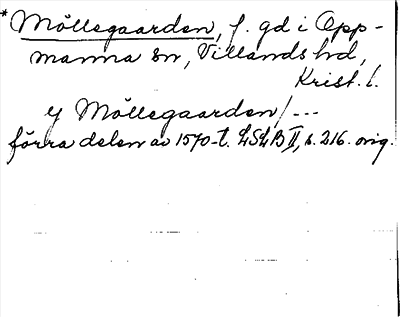 * Möllegaarden, f. gd i Opp-
manna sn, Villands hd,
Krist. l.
y Möllegaarden/---
förra delen av 1570-t. LSLB II, s. 216. orig.